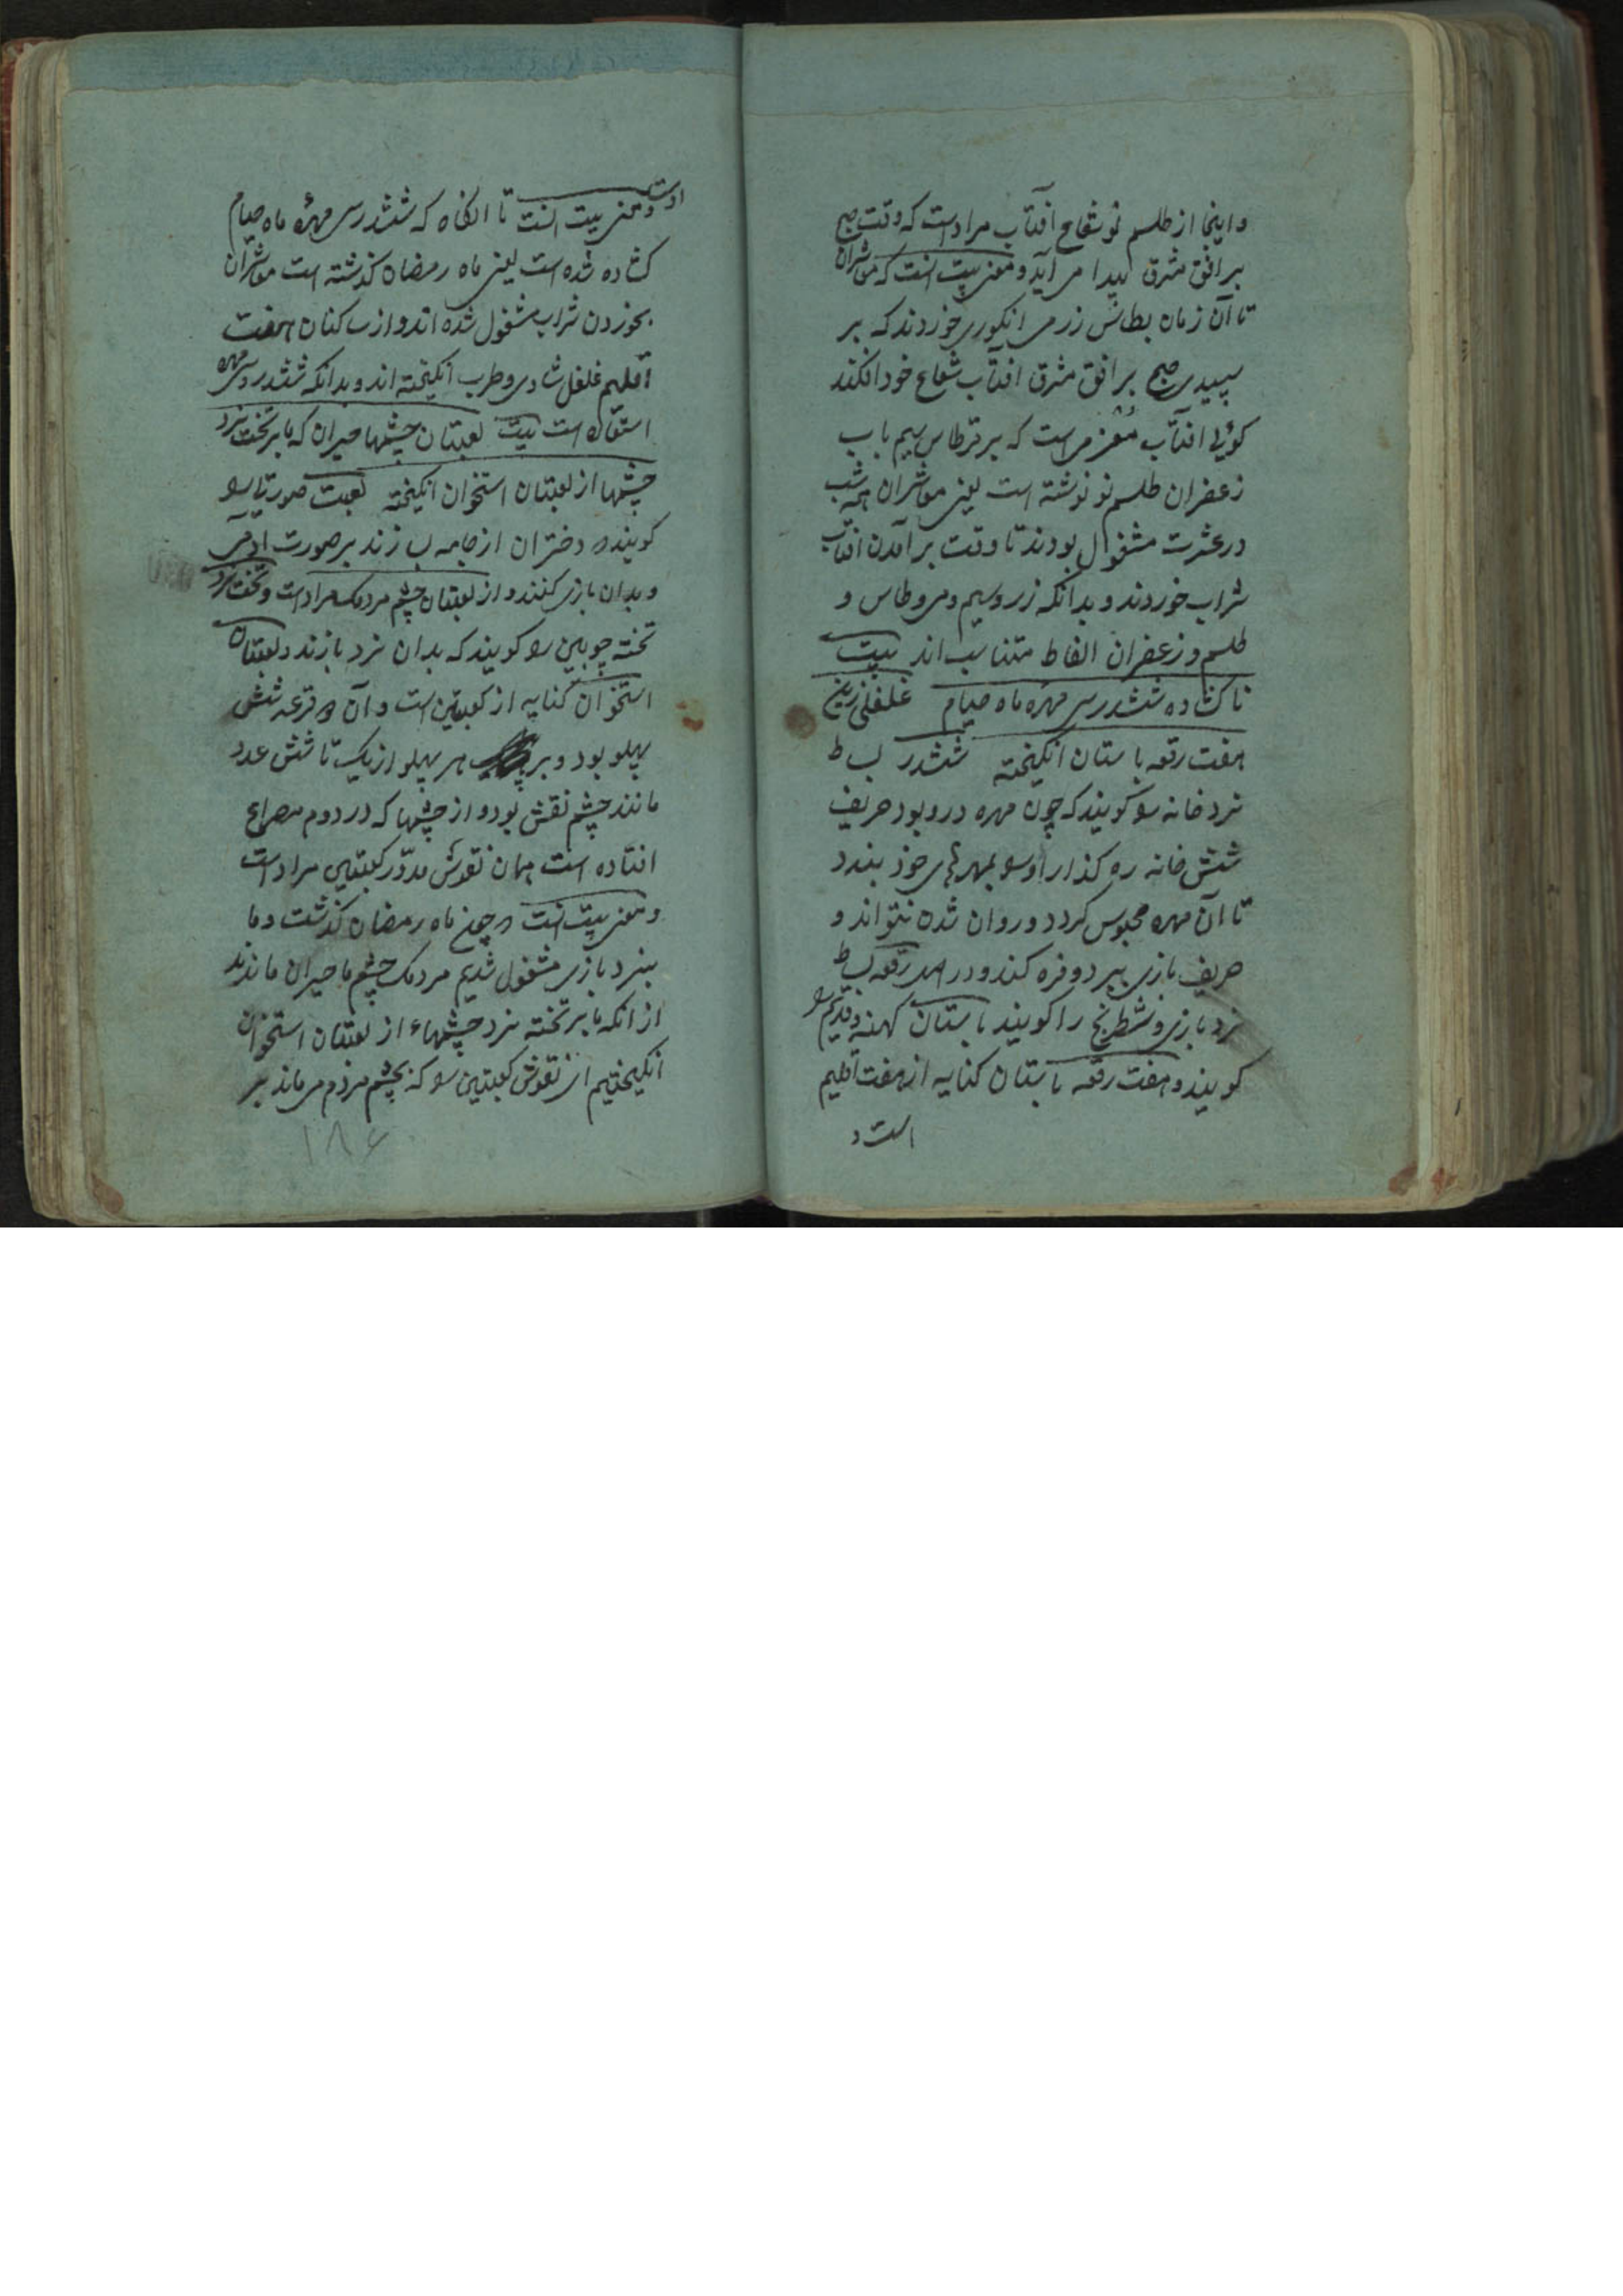 و اینجا از طلسم نو شعاع آفتاب مراد است که وقت صبح
بر افق مشرق پیدا می آید و معنی بیت انست که معاشران
تا آن زمان بطاس زر می انکوری خوردند که بر
سپیدی صبح بر افق مشرق افتاب شعاع خود افکند
کوئی افتاب معزمی است که بر قرطاس سیم باب
زعفران طلسم نو نوشته است یعنی معاشران همه شب
در عشرت مشغول بودند تا وقت بر آمدن افتاب
شراب خوردند و بدانکه زر و سیم و می و طاس و
طلسم و زعفران الفاظ متناسب اند بیت
تا کشاده ششدر سی مهره ماه صیام غلغلی زین
هفت رقعه باستان انکیخته ششدر بساط
نرد خانه را کویند که چون مهره درو بود حریف
شش خانه ره کذار او را بمهرهای خود ببندد
تا آن مهره محبوس کردد و روان شدن نتواند و
حریف بازی ببرد و فره کند و در اصل رقعه بساط
نرد بازی و شطرنج را کویند باستان کهنه و قدیم را
کویند و هفت رقعه باستان کنایه از هفت اقلیم
است و
است و معنی بیت انست تا انکاه که ششدر سی مهره ماه صیام
کشاده شده است یعنی ماه رمضان کذشته است معاشران
بخوردن شراب مشغول شده اند و از ساکنان هفت
اقلیم غلغل شادی و طرب انکیخته اند و بدانکه ششدر و سی مهره
استعاره است بیت لعبتان چشمها حیران که ما بر تخت نرد
چشمها از لعبتان استخوان انکیخته لعبت صورتی را
کویند که دختران از جامه سازند بر صورت آدمی
و بدان بازی کنند و از لعبتان چشم مردمک مراد است و تخت نرد
تخته چوبین را کویند که بدان نرد بازند و لعبتان
استخوان کنایه از کعبتین است و آن دو قرعه شش
پهلو بود و بر هر پهلو از یک تا شش عدد
مانند چشم نقش بود و از چشمها که در دوم مصراع
افتاده است همان نقوش مدوّر کعبتین مراد است
و معنی بیت انست که چون ماه رمضان کذشت و ما
بنرد بازی مشغول شدیم مردمک چشم ما حیران ماندند
از انکه ما بر تخته نرد چشمهاء از لعبتان استخوان
انکیختیم ای نقوش کعبتین را که بچشم مردم می ماند بر
۱۸۶